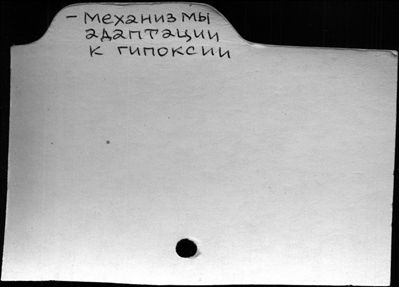 - механизмы
адаптации
к гипоксии